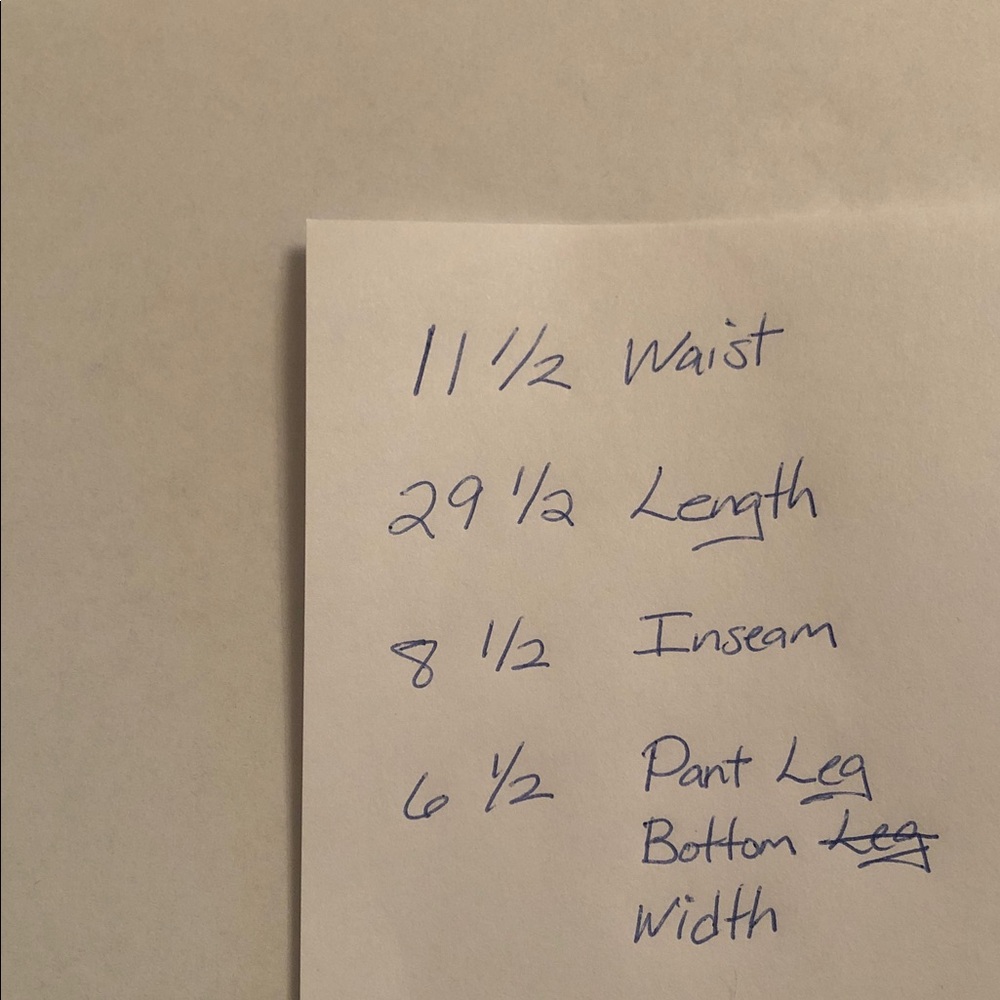 11 1/2 Waist
29 1/2 Length
8 1/2 Inseam
6 1/2 Pant Leg
Bottom Leg
Width